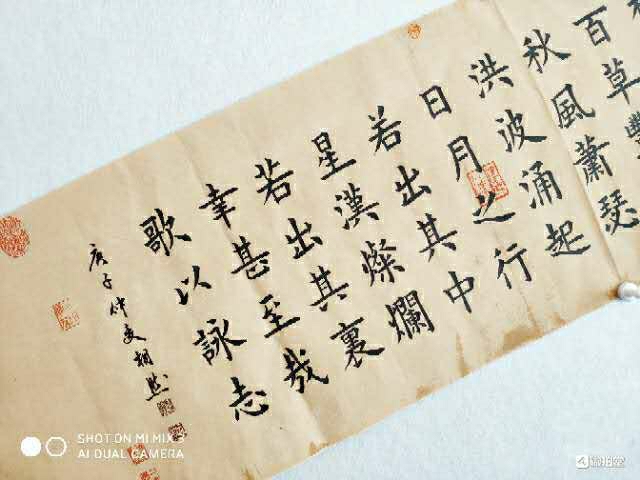 百草豐
秋風蕭瑟
洪波涌起
日月之行
若出其中
星漢燦爛
若出其裏
幸甚至哉
歌以詠志
庚子仲夏
SHOT ON MI MIX 3
AI DUAL CAMERA
微拍堂